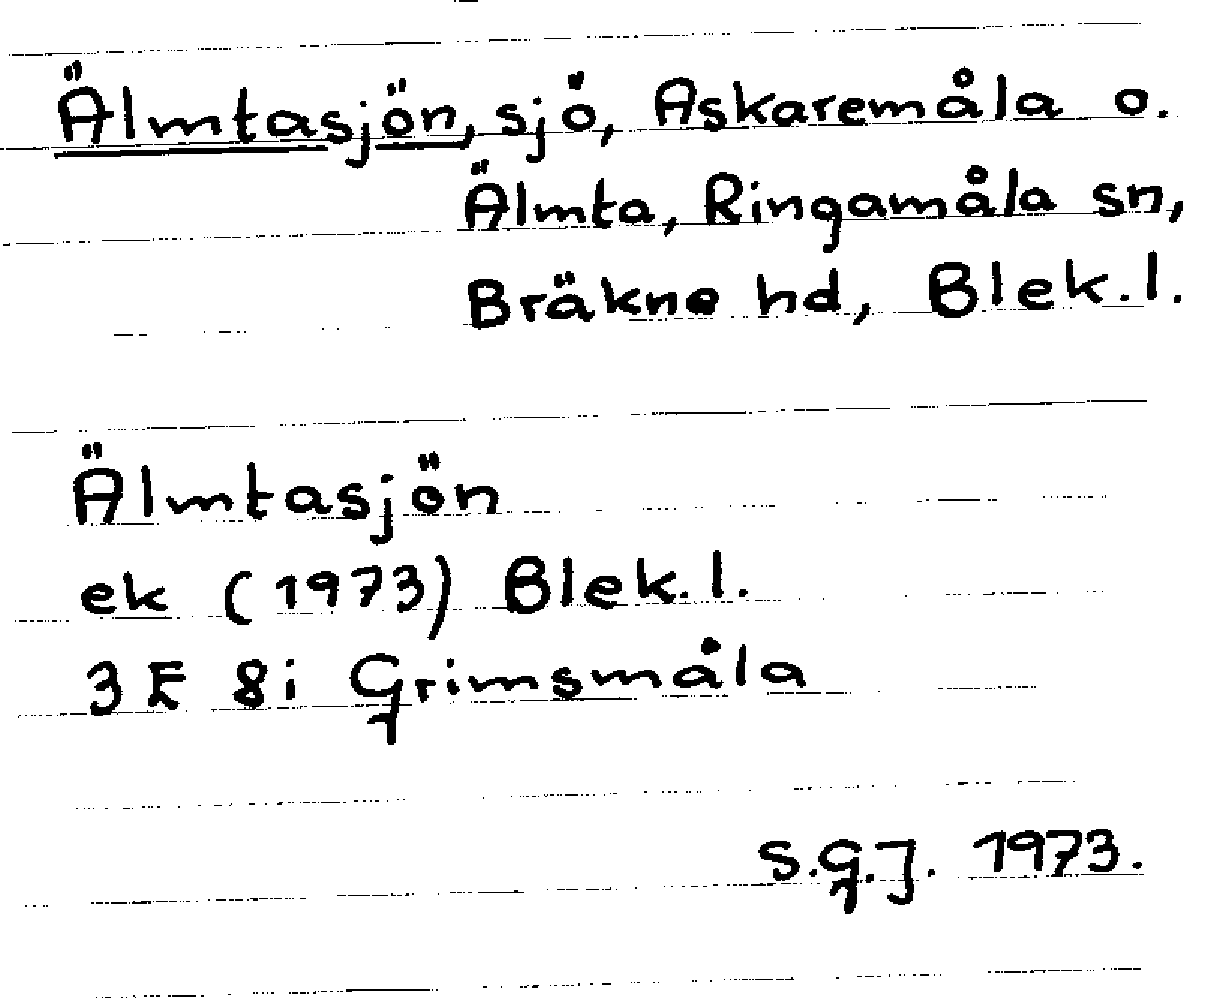 Älmtasjön, sjö, Askaremåla o.
Älmta, Ringamåla sn,
Bräkne hd, Blek.l.
Älmtasjön
ek (1973) Blek.l.
3E 8i Grimsmåla
S.G.J. 1973.